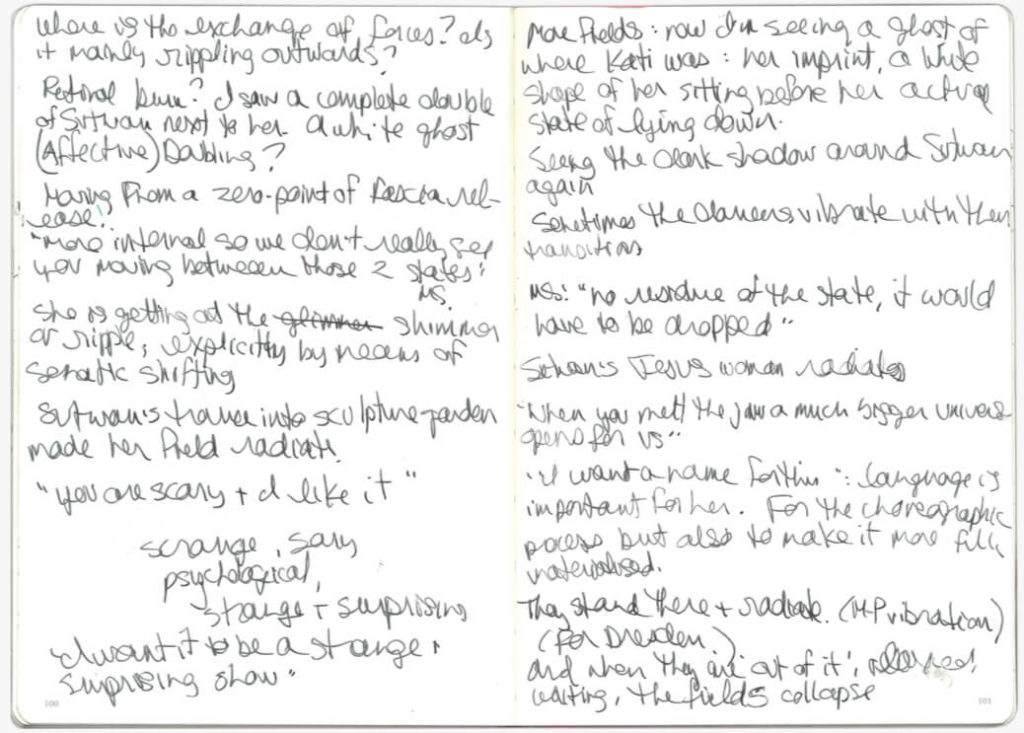 Where is the exchange of forces? Is
it mainly rippling outwards?
Retinal burn? I saw a complete double
of Sutwan next to her. A white ghost
(Affective) Doubling?
Moving from a zero-point of fascia rel-
ease!
"More internal so we don't really see
you moving between those 2 states"
MS.
She is getting at the glimmer shimmer
or ripple, explicitly by means of
somatic shifting
Sutwan's trance into sculpture-garden
made her field radiate.
"You are scary + I like it"
strange, scary
psychological,
strange + surprising
"I want it to be a strange,
surprising show"
100
More fields: now I'm seeing a ghost of
where Kati was: her imprint, a white
shape of her sitting before her actual
state of lying down.
Seeing the dark shadow around Sutwan
again
Sometimes the dancers vibrate with their
transitions
MS: "no residue of the state, it would
have to be dropped"
Sutwan's Jesus woman radiates
"When you melt the jaw a much bigger universe
opens for us"
"I want a name for this": language is
important for her. For the choreographic
process but also to make it more fully
materialised.
They stand there + radiate. (M-P vibration)
(For Dresden.)
and when they are 'out of it',
waiting, the fields collapse
101